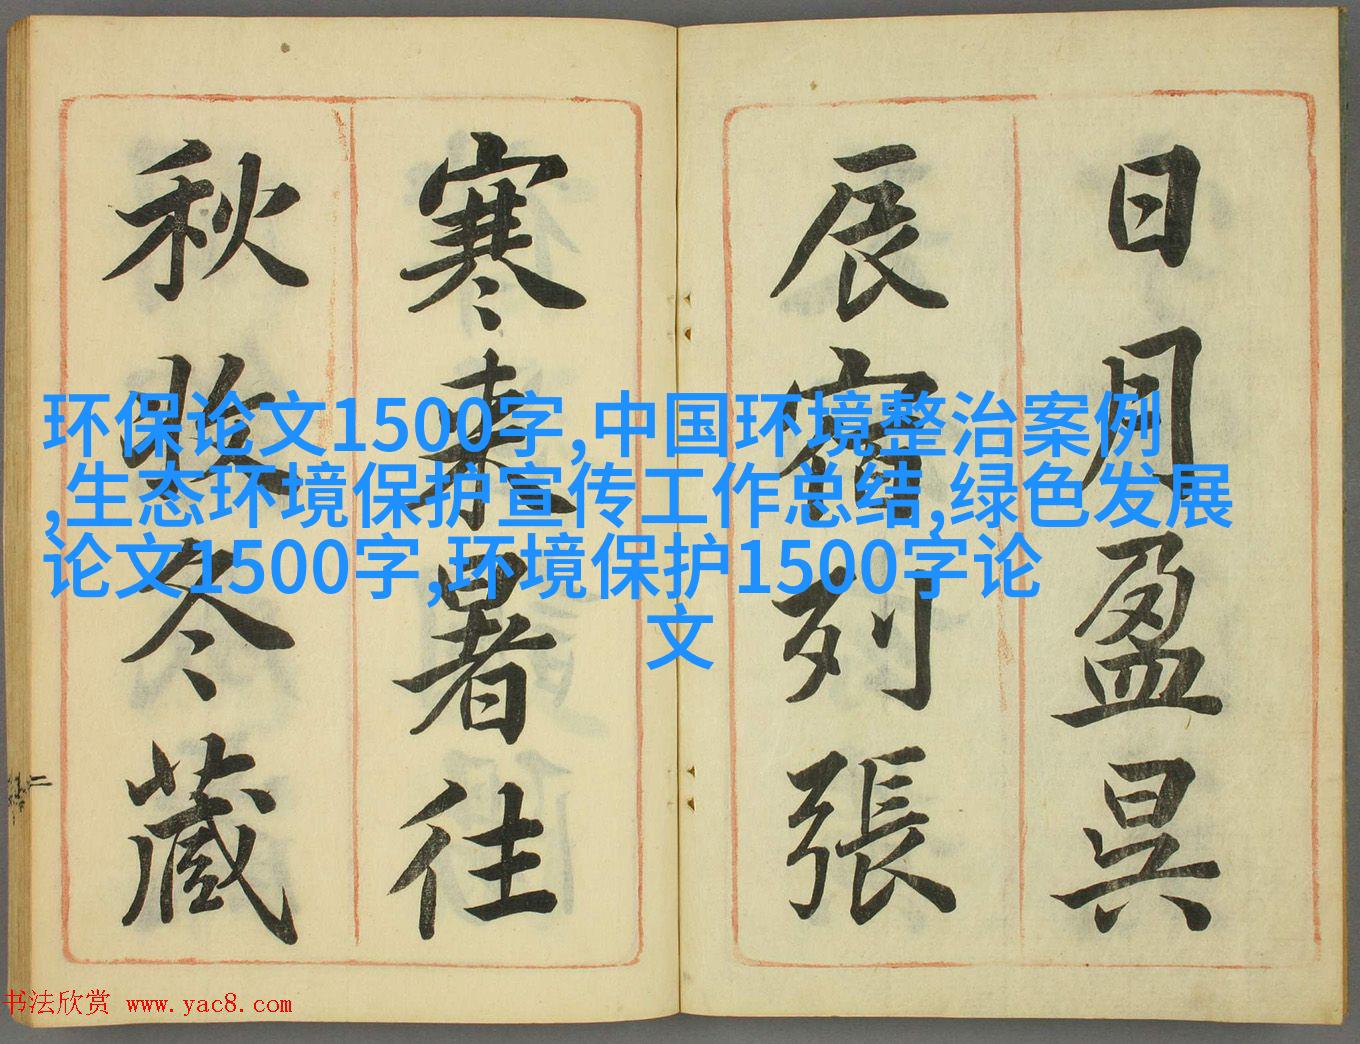 日月盈昃
辰宿列張
寒来暑往
秋收冬藏
环保论文1500字,中国环境整治案例
,生态环境保护宣传工作总结,绿色发展
论文1500字,环境保护1500字论
文
书法欣赏 www.yac8.com